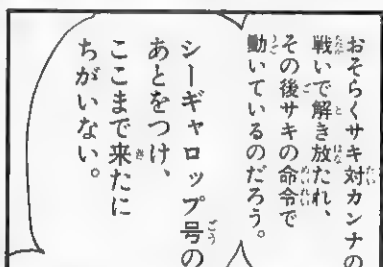 おそらくサキ対カンナの
戦いで解き放たれ、
その後サキの命令で
動いているのだろう。
シーギャロップ号の
あとをつけ、
ここまで来たに
ちがいない。